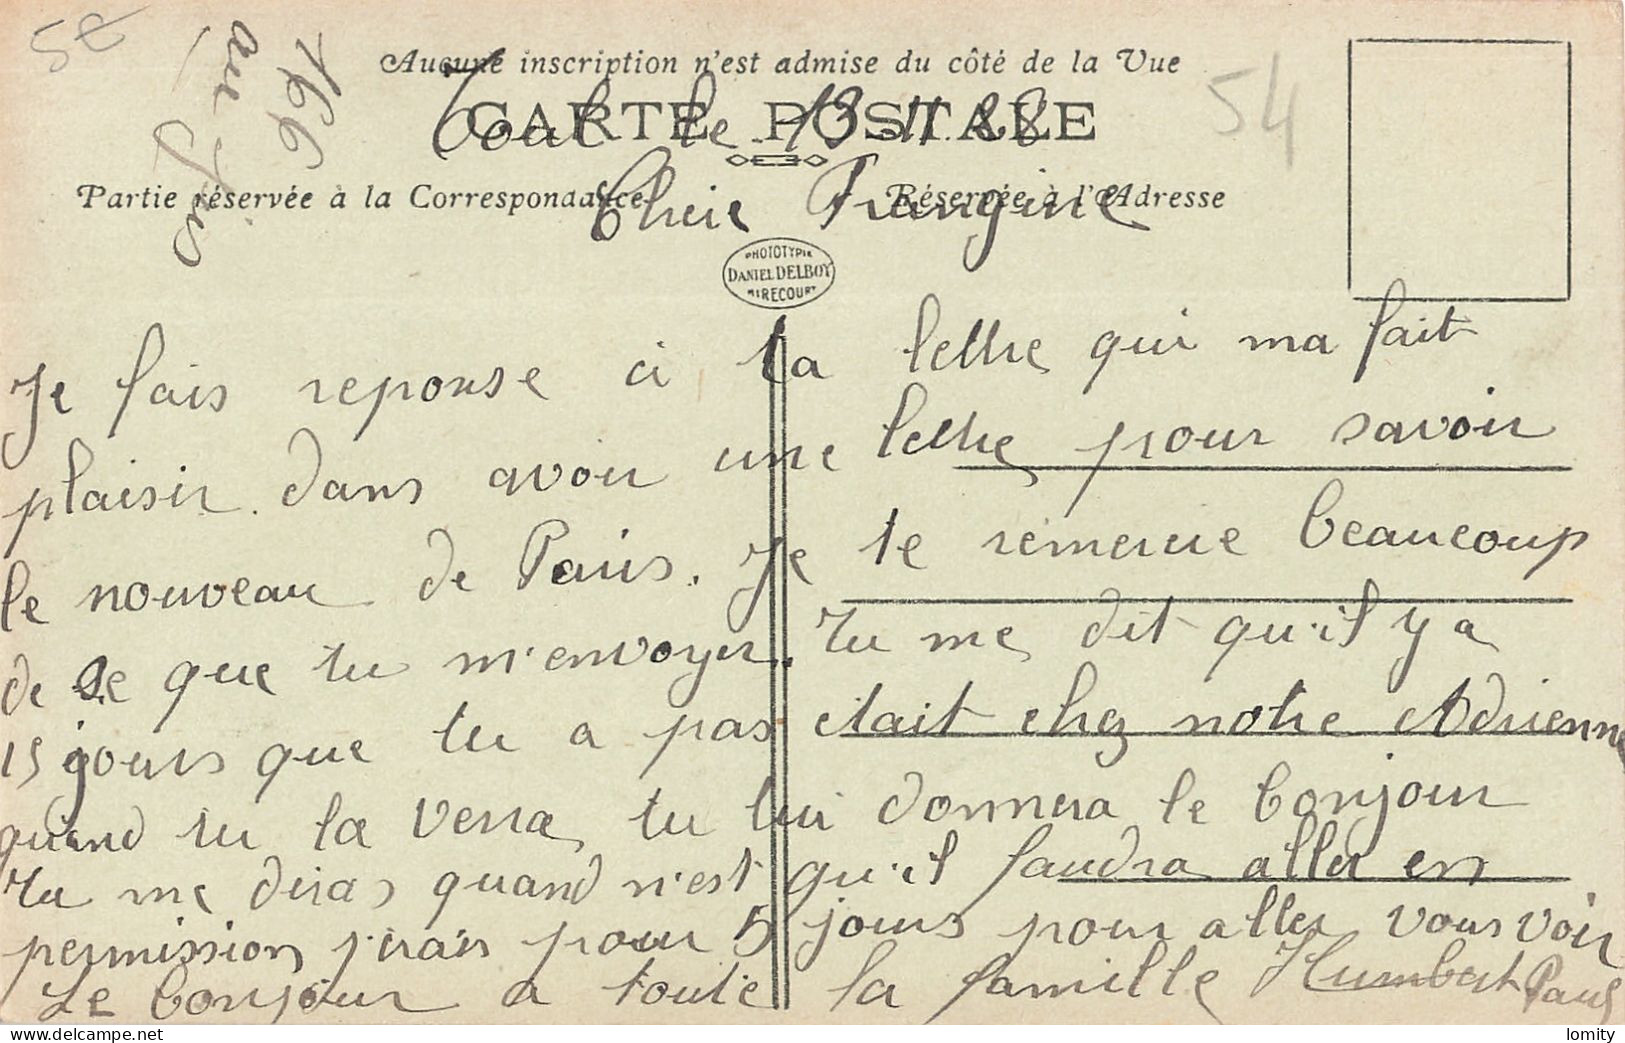 5e
166
Aucune inscription n'est admise du côté de la Vue
54
CARTE POSTALE
Toul le 13
Partie réservée à la Correspondance
Réservée à l'Adresse
Cherie Frangine
PHOTOTYPIE
DANIEL DELBOY
MIRECOURT
Je fais reponse a la lettre qui ma fait
plaisir dans avoir une lettre pour savoir
le nouveau de Paris. Je te remercie beaucoup
de ce que tu m'envoyer. Tu me dit qu'il y a
15 jours que tu a pas etait chez notre Adrienne
quand tu la verra tu lui donnera le bonjour
Tu me diras quand n'est qu'il faudra aller en
permission j'irais pour 5 jours pour aller vous voir
Le bonjour a toute la famille Humbert Paul
lomity